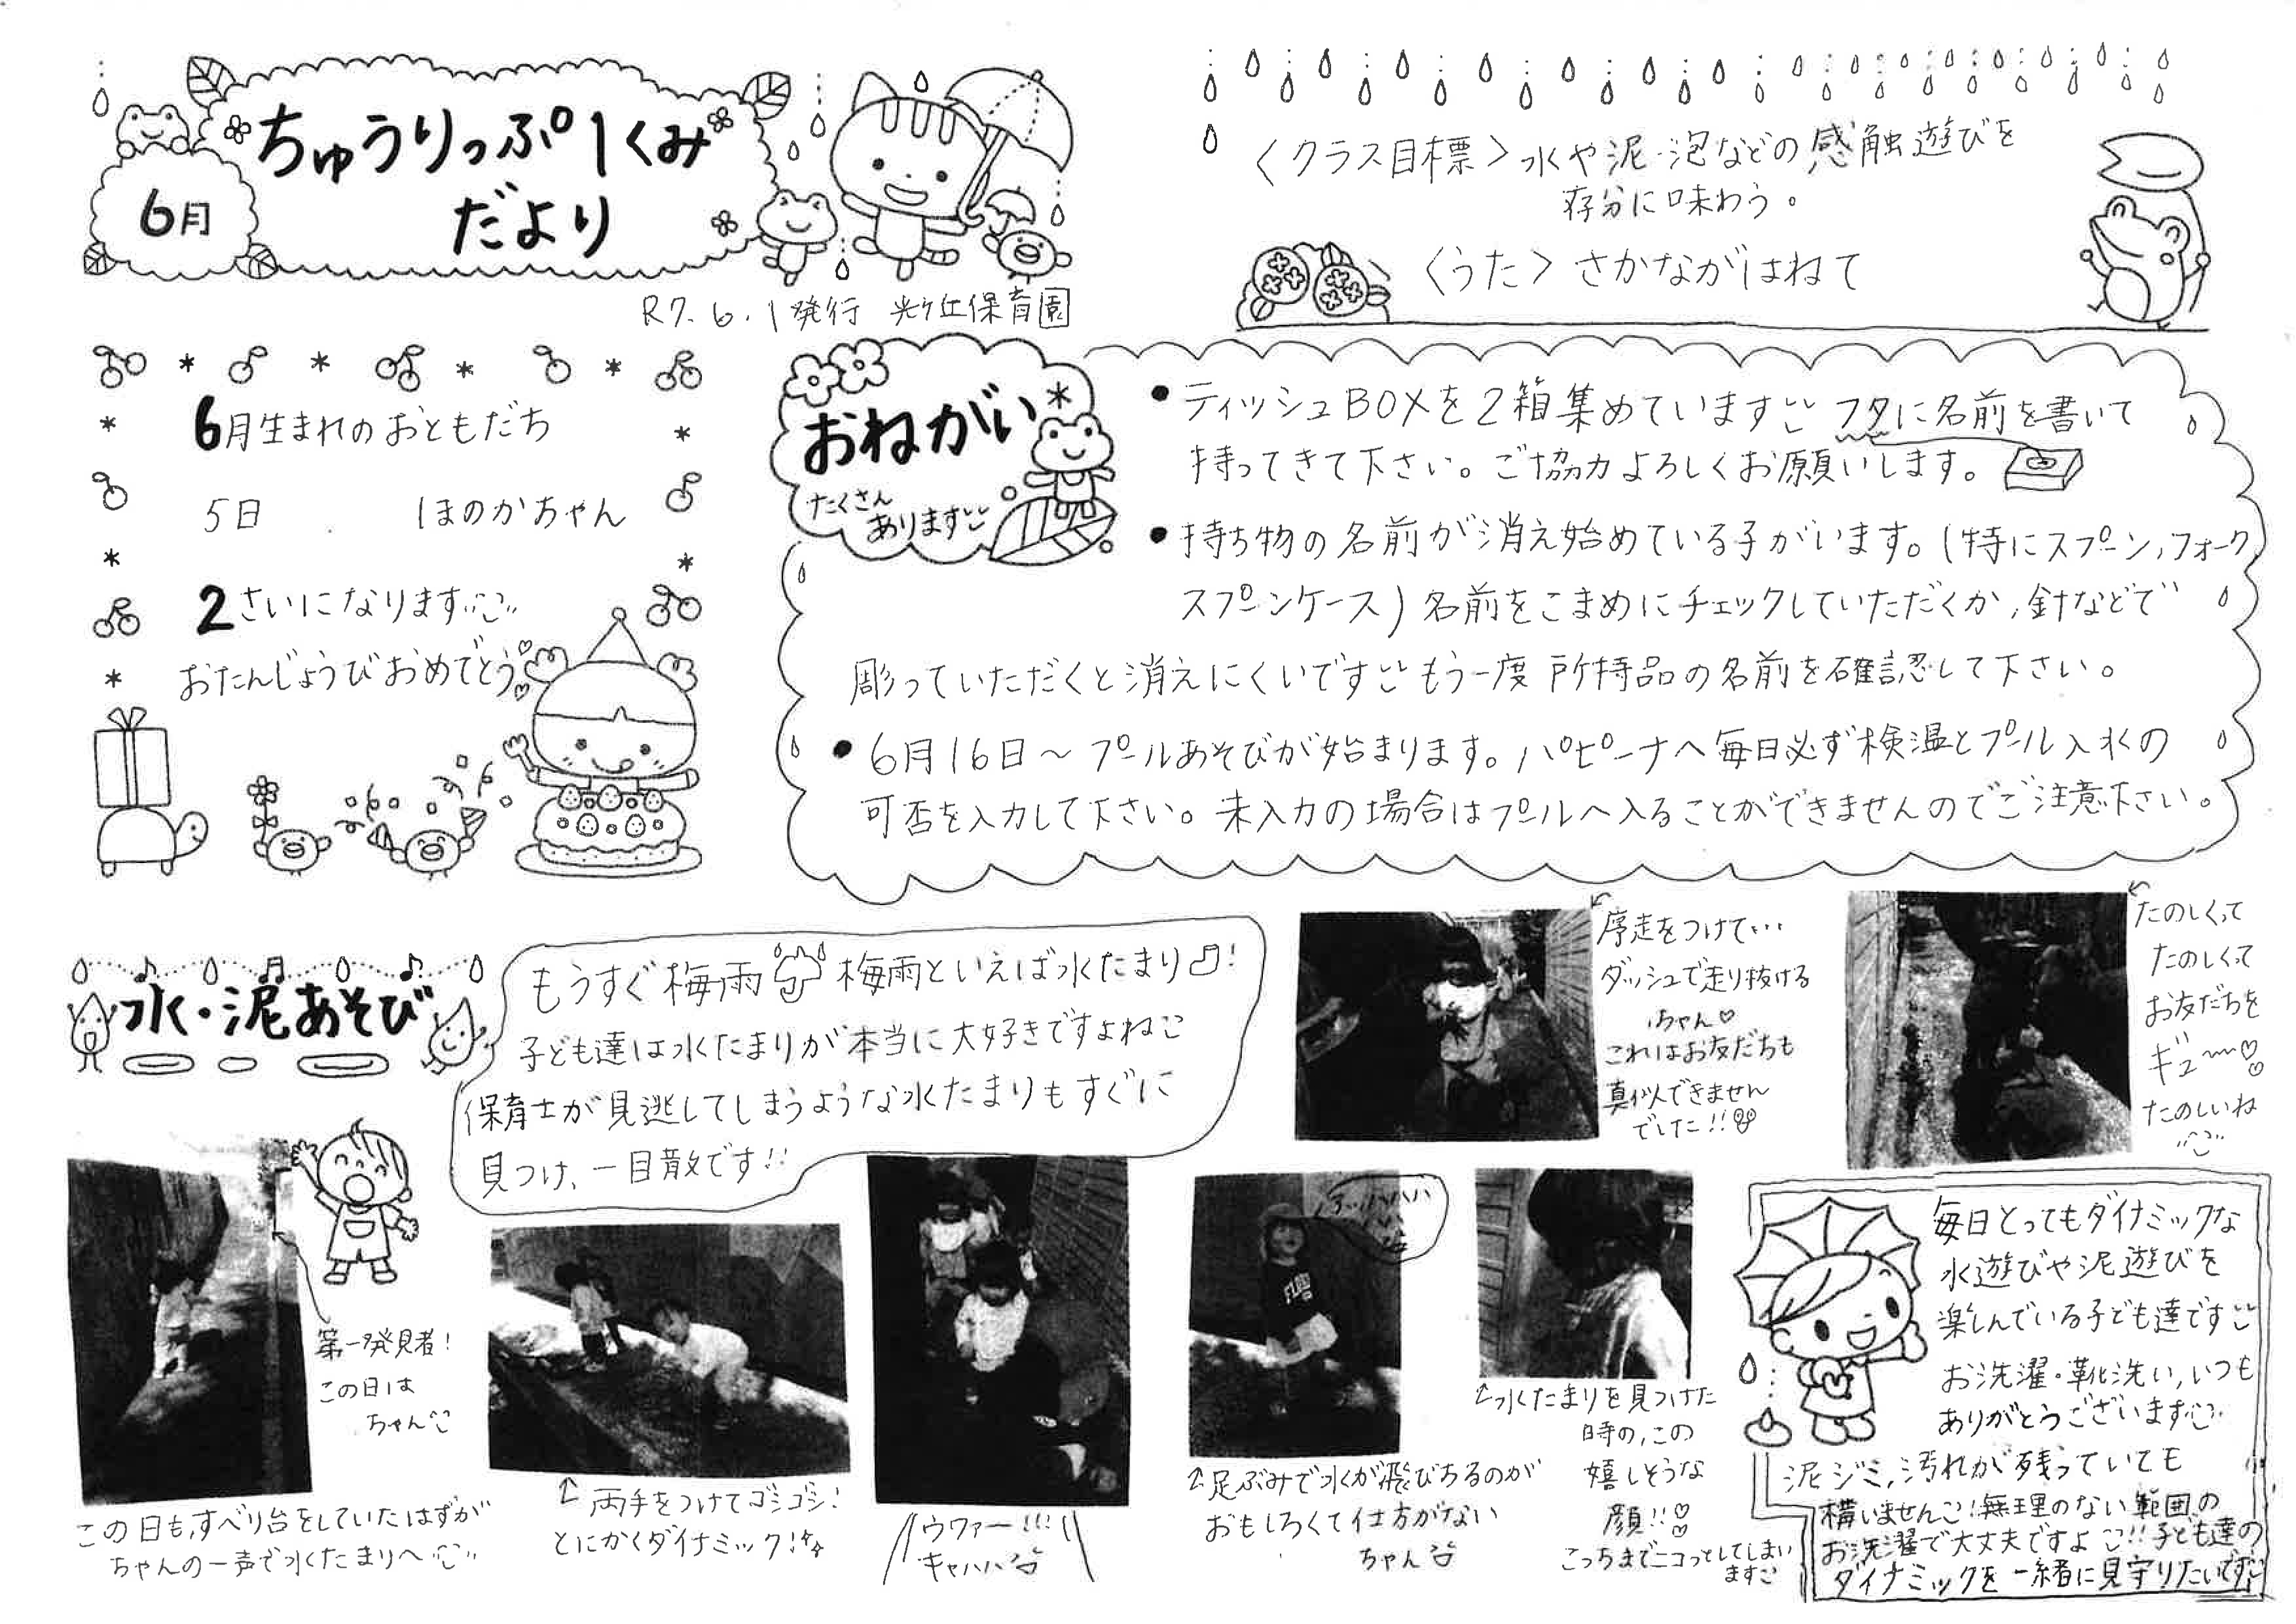 6月
ちゅうりっぷ1くみ
だより
R7.6.1発行 光ケ丘保育園
〈クラス目標〉水や泥・泡などの感触遊びを
存分に味わう。
〈うた〉さかながはねて
6月生まれのおともだち
5日 ほのかちゃん
2さいになります
おたんじょうびおめでとう
おねがい
たくさん
あります
●ティッシュBOXを2箱集めています フタに名前を書いて
持ってきて下さい。ご協力よろしくお願いします。
●持ち物の名前が消え始めている子がいます。(特にスプーン,フォーク,
スプーンケース)名前をこまめにチェックしていただくか,針などで
彫っていただくと消えにくいです もう一度所持品の名前を確認して下さい。
●6月16日〜プールあそびが始まります。パピーナへ毎日必ず検温とプール入水の
可否を入力して下さい。未入力の場合はプールへ入ることができませんのでご注意下さい。
水・泥あそび
もうすぐ梅雨 梅雨といえば水たまり!
子ども達は水たまりが本当に大好きですよね
保育士が見逃してしまうような水たまりもすぐに
見つけ、一目散です!!
第一発見者!
この日は
ちゃん
この日も,すべり台をしていたはずが
ちゃんの一声で水たまりへ
両手をつけてゴシゴシ!
とにかくダイナミック!
ウワァー!!!
キャハハ
アッハハハ
足ぶみで水が飛びちるのが
おもしろくて仕方がない
ちゃん
水たまりを見つけた
時の,この
嬉しそうな
顔!!
こっちまでニコっとしてしまい
ます
序走をつけて…
ダッシュで走り抜ける
ちゃん
これはお友だちも
真似できません
でした!!
たのしくって
たのしくって
お友だちを
ギュ〜
たのしいね
毎日とってもダイナミックな
水遊びや泥遊びを
楽しんでいる子ども達です
お洗濯・靴洗い,いつも
ありがとうございます
泥ジミ,汚れが残っていても
構いません!無理のない範囲の
お洗濯で大丈夫ですよ!!子ども達の
ダイナミックを一緒に見守りたいです